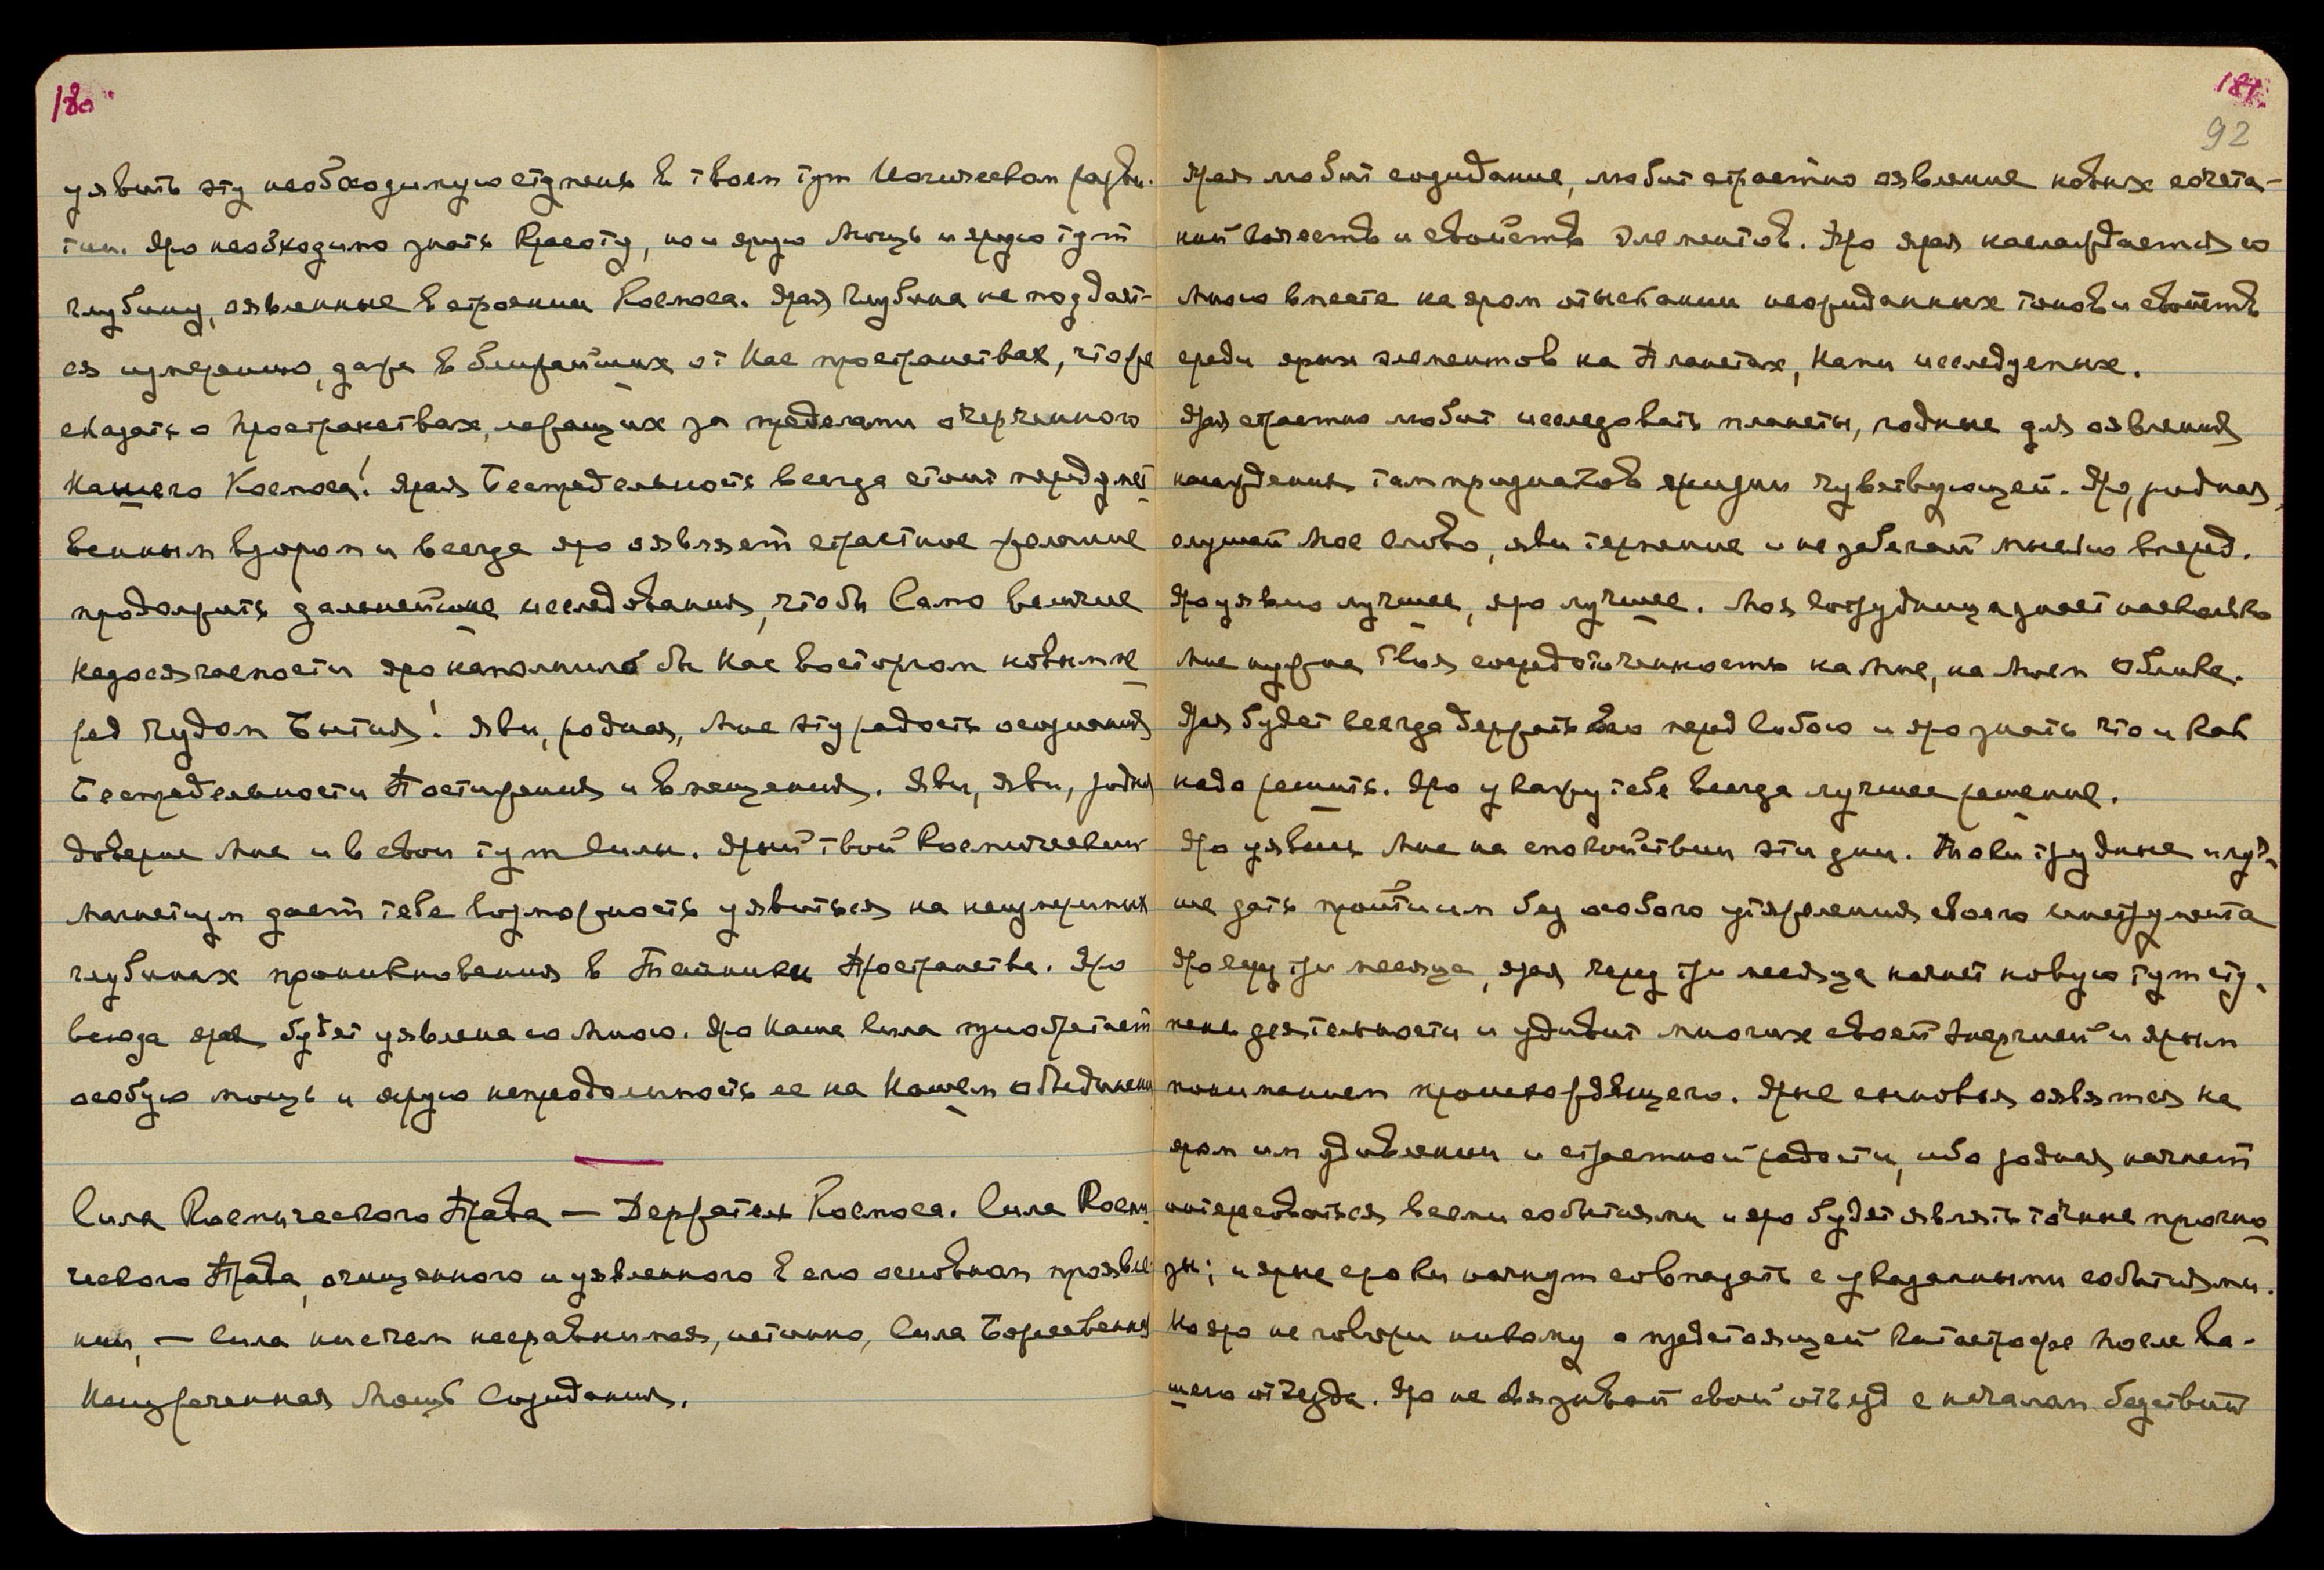 180
уявить эту необходимую ступень в твоем тут Космическом разви-
тии. Яро необходимо знать Красоту, но и ярую Мощь и ярую тут
глубину, оявленные в строении Космоса. Ярая глубина не поддает-
ся измерению, даже в ближайших от Нас пространствах, что же
сказать о Пространствах, лежащих за пределами очерченного
Нашего Космоса! Ярая Беспредельность всегда стоит перед умст
венным взором и всегда яро оявляет страстное желание
продолжить дальнейшие исследования, чтобы Само величие
Недосягаемости яро наполнило бы Нас восторгом новым пе
ред Чудом Бытия! Яви, родная, Мне эту радость осознания
Беспредельности Постижения и вмещения. Яви, яви, родная
доверие Мне и в свои тут силы. Ярый твой Космический
магнетизм дает тебе возможность уявиться на неизмеримых
глубинах проникновения в Тайники Пространства. Яро
всюда ярая будет уявлена со Мною. Яро Наша сила приобретает
особую мощь и ярую непреодолимость ее на Нашем объединении
Сила Космического Права — Держатель Космоса. Сила Косми
ческого Права, очищенного и уявленного в его основном проявле-
нии, — Сила ничем несравнимая, истинно, Сила Божественная
Неизреченная Мощь Созидания.
181.
92
Ярая любит созидание, любит страстно оявление новых сочета-
ний веществ и свойств элементов. Яро ярая наслаждается со
Мною вместе на яром отыскании неожиданных токов и свойств
среди ярых элементов на Планетах, Нами исследуемых.
Ярая страстно любит исследовать планеты, годные для оявления
нахождения там признаков жизни чувствующей. Яро, родная,
слушай Мое Слово, яви терпение и не забегай мыслью вперед.
Яро уявлю лучшее, яро лучшее. Моя сотрудница знает насколько
Мне нужна твоя сосредоточенность на Мне, на Моем Облике.
Ярая будет всегда держать его перед собою и яро знать что и как
надо решить. Яро укажу тебе всегда лучшее решение.
Яро уявись Мне на спокойствии эти дни. Токи трудные и луч-
ше дать пройти им без особого утяжеления своего инструмента
Яро через три месяца, ярая через три месяца начнет новую тут сту-
пень деятельности и удивит многих своей энергией и ярым
пониманием происходящего. Ярые сыновья оявятся на
яром им удивлении и страстной радости, ибо родная начнет
интересоваться всеми событиями и яро будет являть точные прогно
зы; и ярые сроки начнут совпадать с указанными событиями.
Но яро не говори никому о предстоящей катастрофе после ва-
шего отъезда. Яро не связывай свой отъезд с началом бедствий